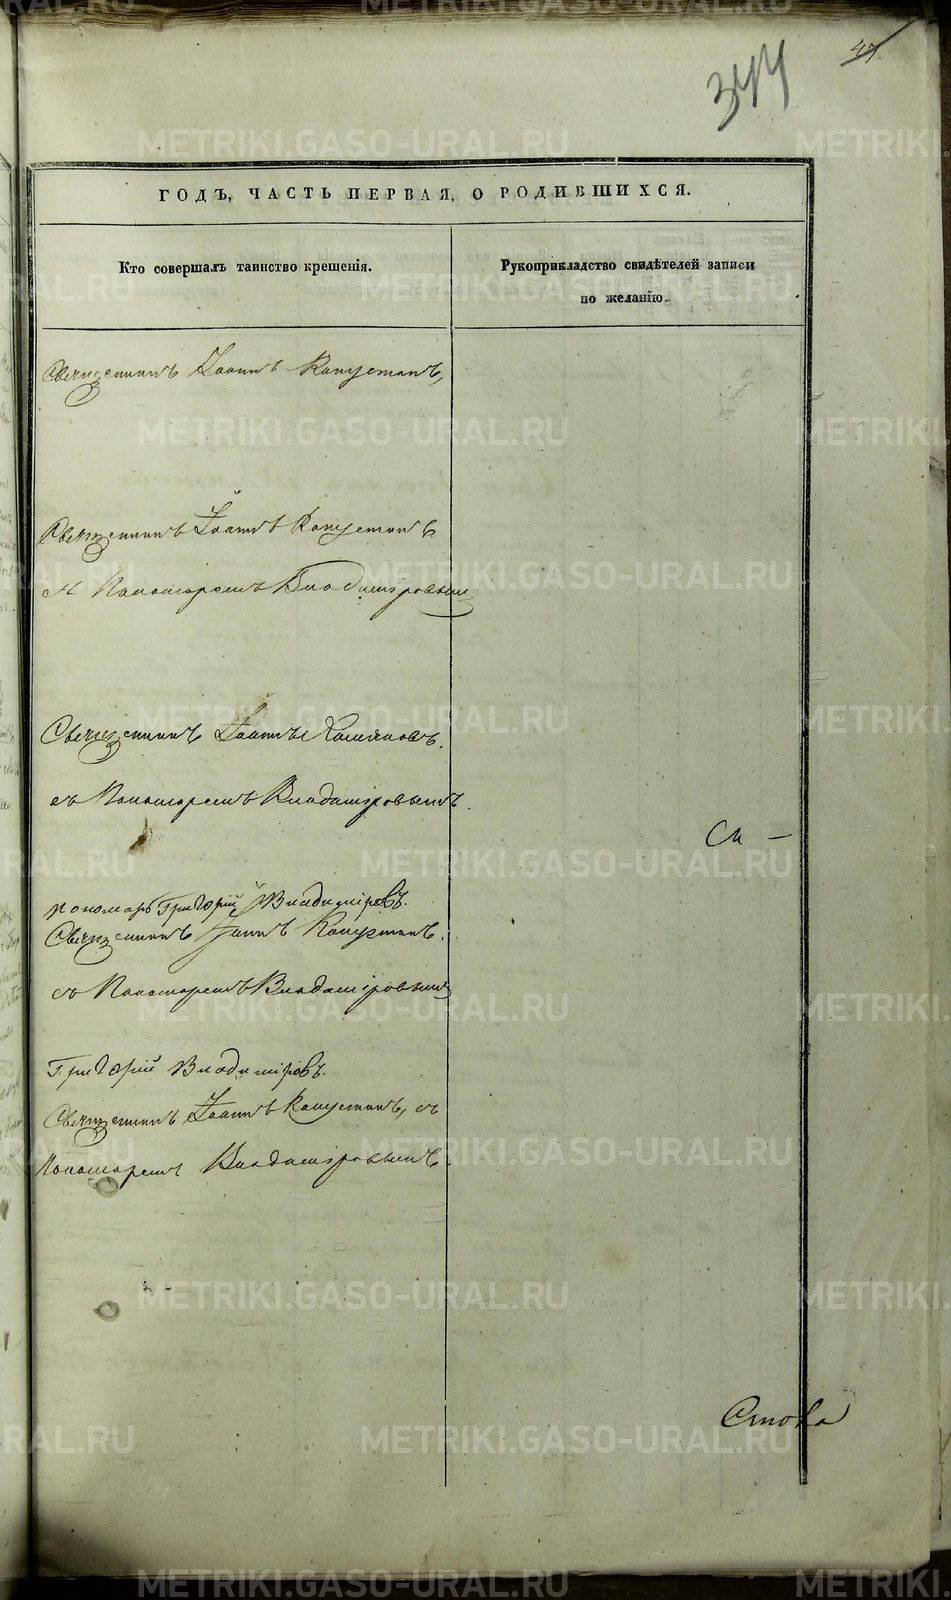 344
47
ГОДЪ, ЧАСТЬ ПЕРВАЯ, О РОДИВШИХСЯ.
Кто совершалъ таинство крещенія.
Рукоприкладство свидѣтелей записи
по желанію.
Священникъ Іоаннъ Капустинъ,
Священникъ Іоаннъ Капустинъ
съ Пономаремъ Владиміровымъ
Священникъ Іоаннъ
съ Пономаремъ Владиміровымъ.
См —
пономарь Григорій Владиміровъ.
Священникъ Іоаннъ Капустинъ.
съ Пономаремъ Владиміровымъ
Григорій Владиміровъ.
Священникъ Іоаннъ Капустинъ, съ
Пономаремъ Владиміровымъ.
METRIKI.GASO-URAL.RU